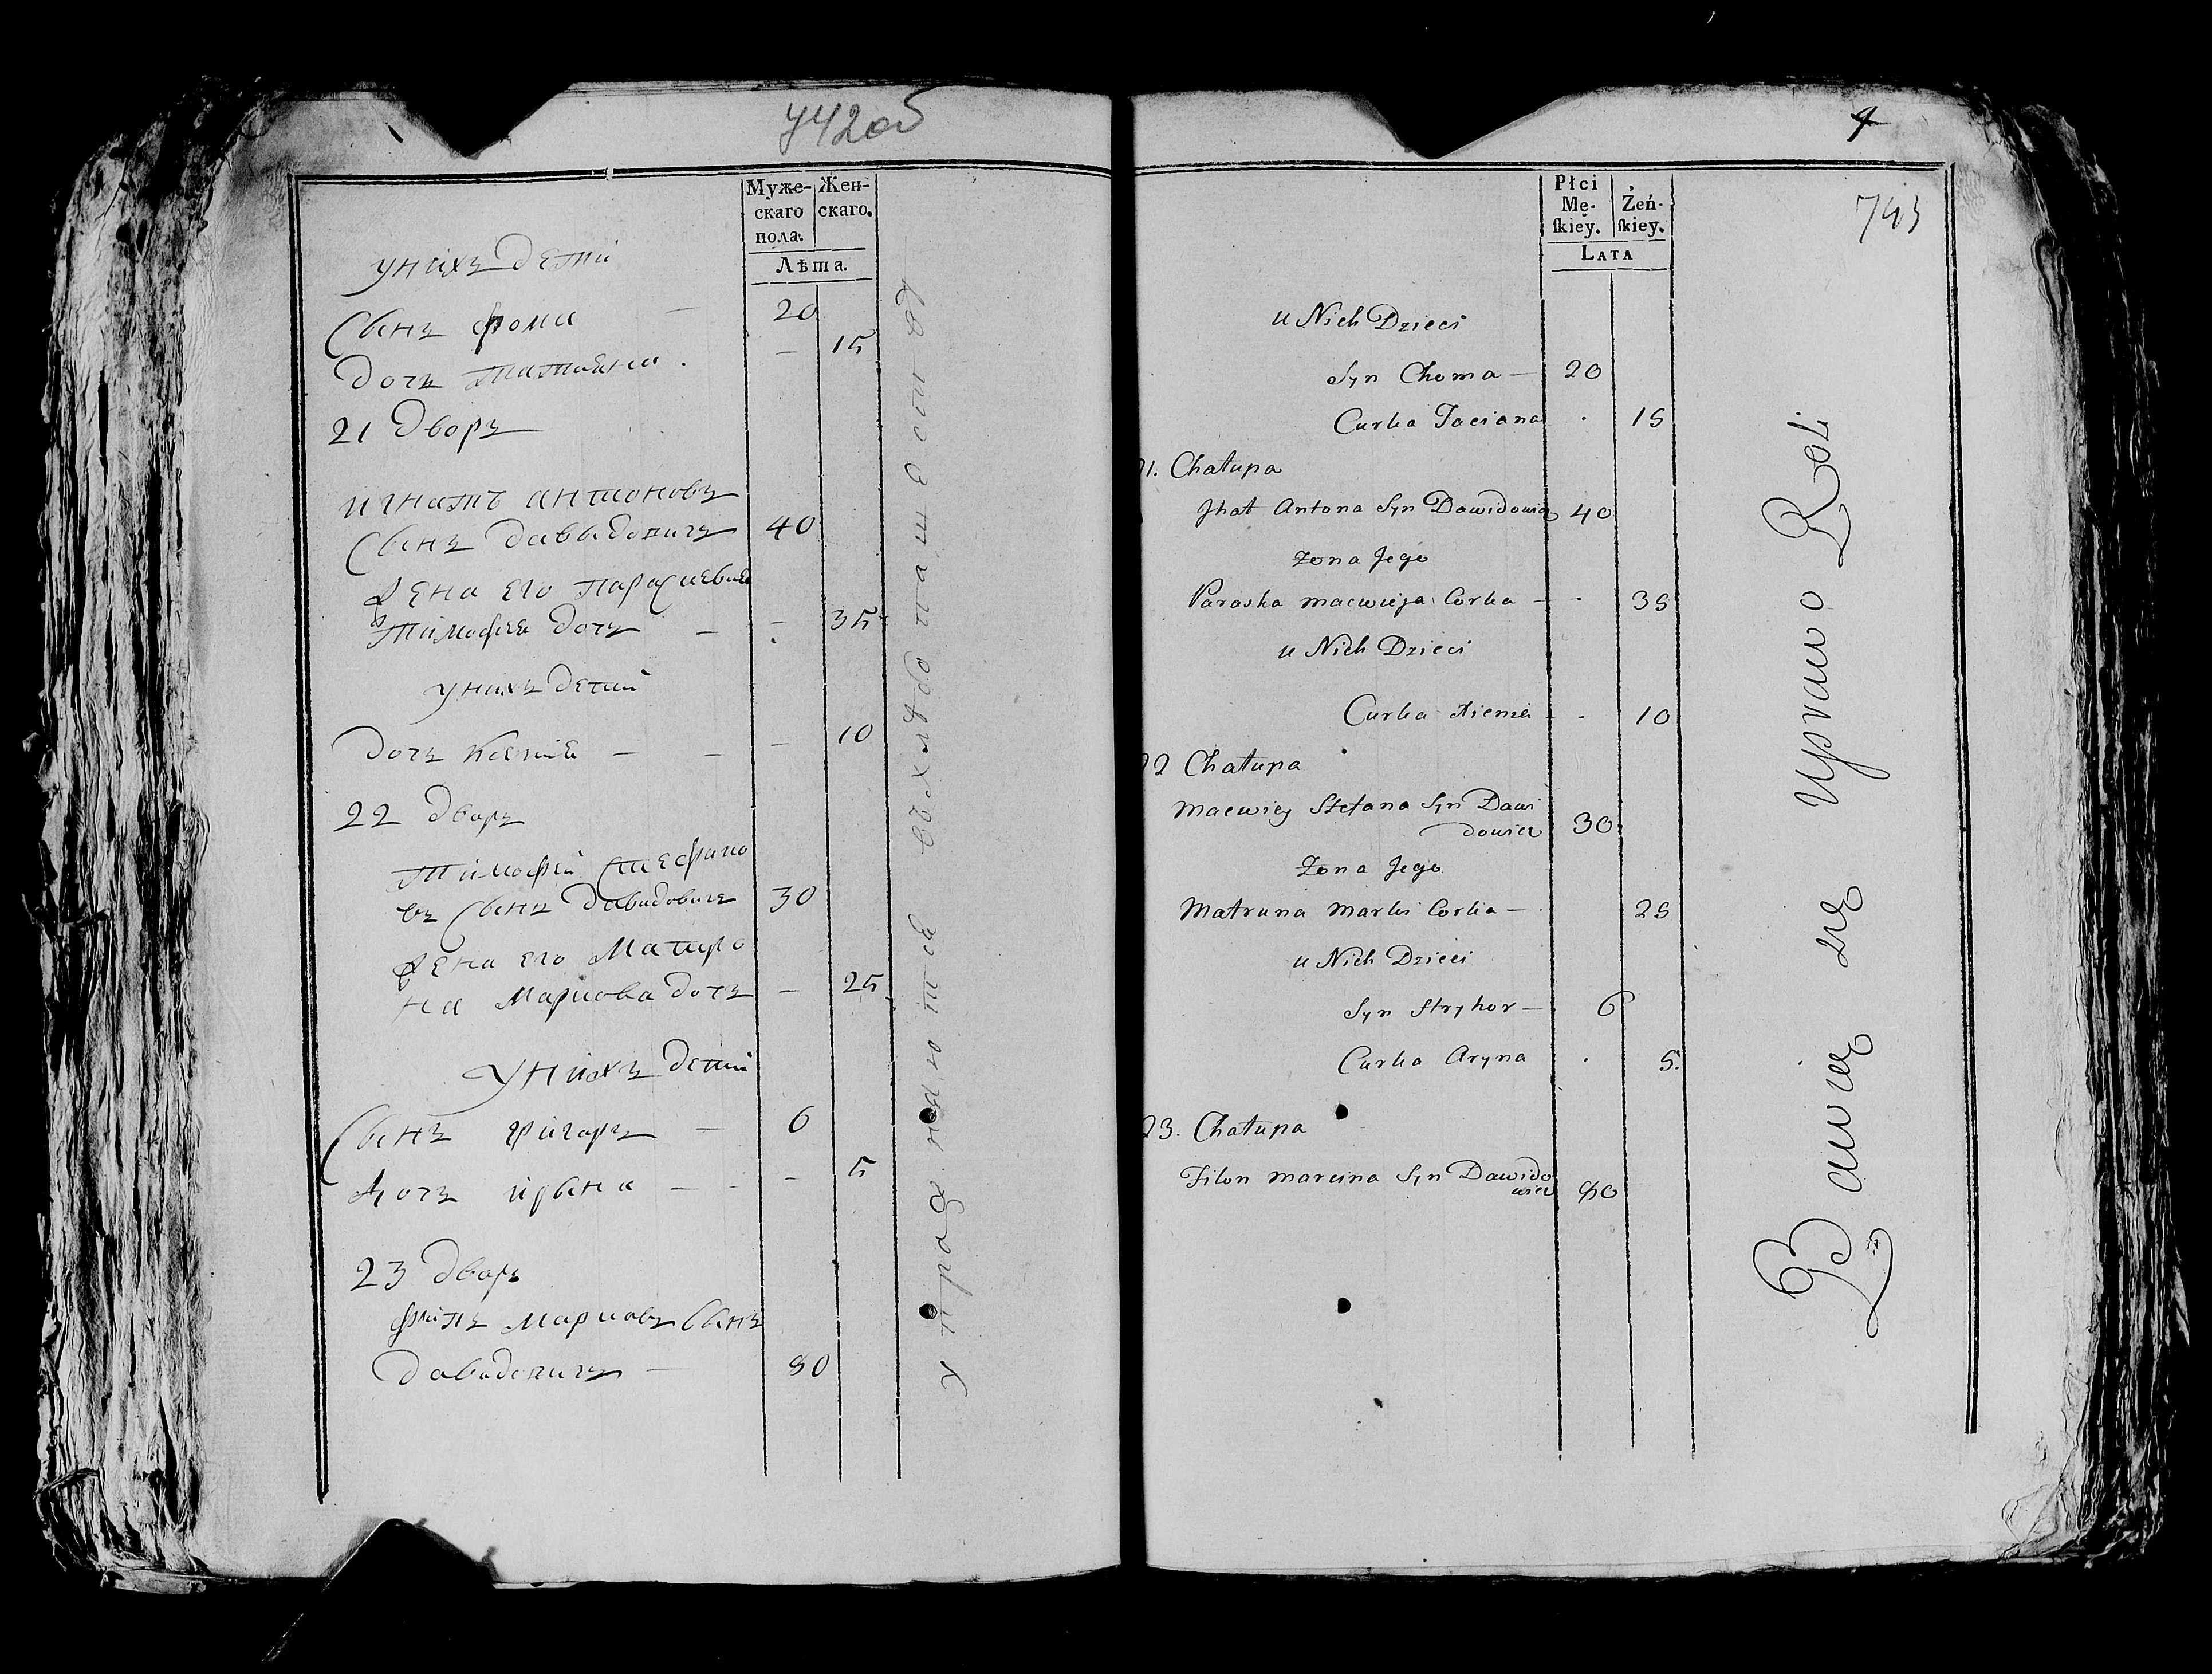 742об
Муже- Жен-
скаго скаго.
пола.
Лѣта.
у нихъ дети
Сынъ фома — 20
дочь татыяна . — 15
21 дворъ
игнатъ антоновъ
Сынъ давыдовичъ 40
жена его парасковья
тимофея дочь — — 35
у нихъ детий
дочь ксения — — — 10
22 дворъ
тимофей стефано
въ Сынъ давидовичъ 30
жена его Матро
на Маркова дочь — 25
у нихъ детий
Сынъ григоръ — 6
дочь ирына — - — 5
23 дворъ
филипъ Марковъ Сынъ
давидовичъ — 80
упражняются въ хлебопашестве
743
Płci Żeń-
Mę- ſkiey.
ſkiey.
LATA
u Nich Dzieci
Syn Choma — 20
Curka Taciana . 15
21. Chałupa
Jhat Antona Syn Dawidowicz 40
Żona Jego
Paraska Macwieja Corka — . 35
u Nich Dzieci
Curka Xienia . 10
22 Chałupa
Macwiey Stefana Syn Dawi
dowicz 30
Żona Jego
Matruna Marki Corka — 25
u Nich Dzieci
Syn Hryhor — 6
Curka Aryna . 5.
23. Chałupa
Filon Marcina Syn Dawido
wicz 80
Bawią się uprawo Roli